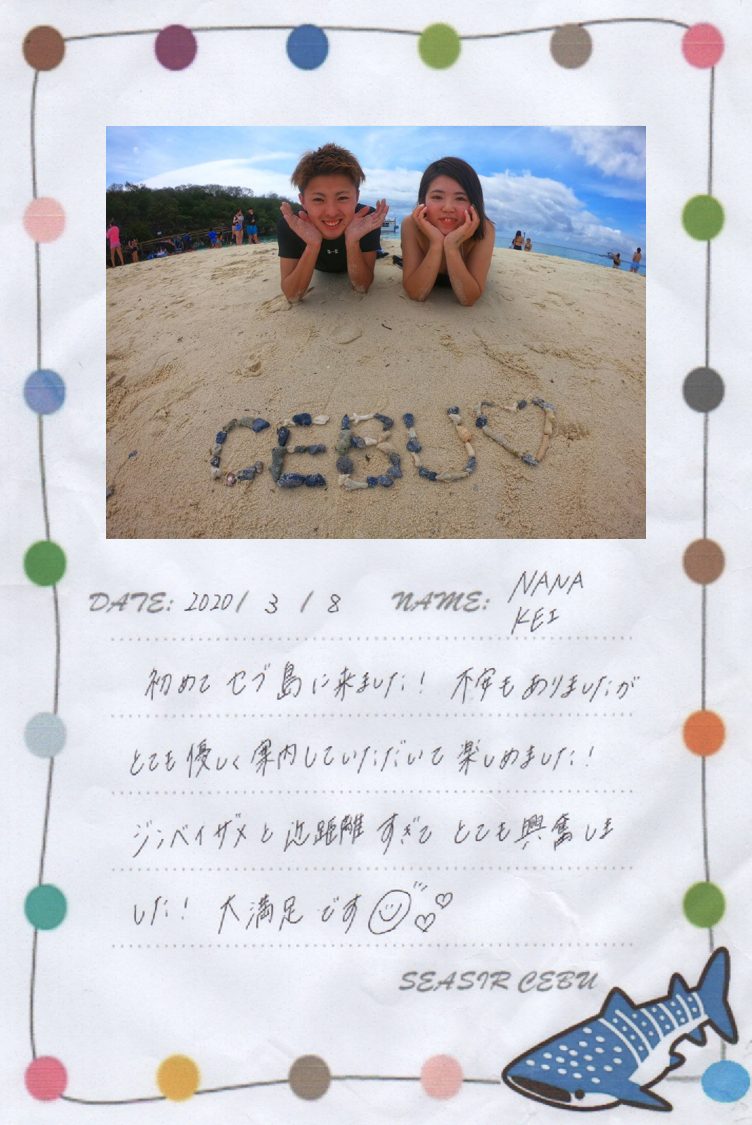 CEBU♡
DATE: 2020/ 3 / 8 NAME: NANA
KEI
初めて セブ島に来ました! 不安もありましたが
とても優しく案内していただいて楽しめました!
ジンベイザメと近距離すぎて とても興奮しま
した! 大満足です
SEASIR CEBU